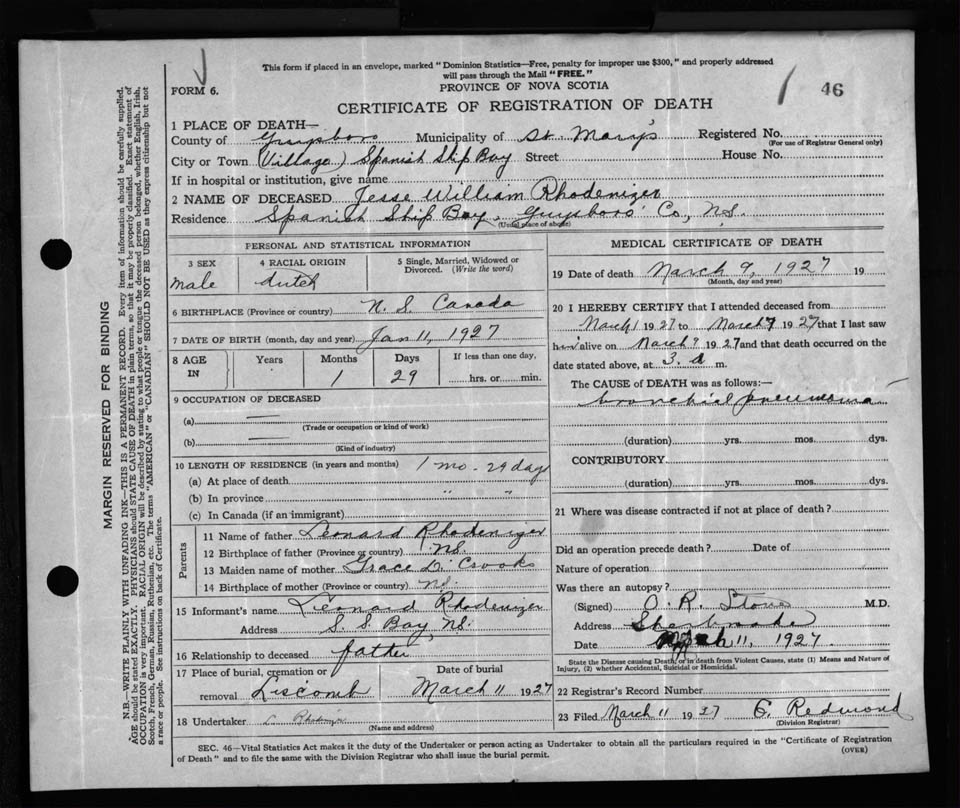 This form if placed in an envelope, marked "Dominion Statistics—Free, penalty for improper use $300," and properly addressed
will pass through the Mail "FREE."
FORM 6.
PROVINCE OF NOVA SCOTIA
46
CERTIFICATE OF REGISTRATION OF DEATH
1 PLACE OF DEATH—
County of Guysboro Municipality of St. Mary's Registered No.
(For use of Registrar General only)
City or Town (Village) Spanish Ship Bay Street House No.
If in hospital or institution, give name
2 NAME OF DECEASED Jesse William Rhodenizer
Residence Spanish Ship Bay, Guysboro Co., N.S.
(Usual place of abode)
PERSONAL AND STATISTICAL INFORMATION
3 SEX 4 RACIAL ORIGIN 5 Single, Married, Widowed or
Divorced. (Write the word)
male dutch
6 BIRTHPLACE (Province or country) N. S. Canada
7 DATE OF BIRTH (month, day and year) Jan 11, 1927
8 AGE IN Years Months Days If less than one day,
1 29 hrs. or min.
9 OCCUPATION OF DECEASED
(a)
(Trade or occupation or kind of work)
(b)
(Kind of industry)
10 LENGTH OF RESIDENCE (in years and months) 1 mo. 29 days
(a) At place of death
(b) In province " "
(c) In Canada (if an immigrant)
Parents
11 Name of father Leonard Rhodenizer
12 Birthplace of father (Province or country) N.S.
13 Maiden name of mother Grace D. Crooks
14 Birthplace of mother (Province or country) N.S.
15 Informant's name Leonard Rhodenizer
Address S. S. Bay, N.S.
16 Relationship to deceased father
17 Place of burial, cremation or Date of burial
removal Liscomb March 11 1927
18 Undertaker L. Rhodenizer
(Name and address)
MEDICAL CERTIFICATE OF DEATH
19 Date of death March 9, 1927 19
(Month, day and year)
20 I HEREBY CERTIFY that I attended deceased from
March 1 1927 to March 9 1927 that I last saw
him alive on March 9 1927 and that death occurred on the
date stated above, at 3. a m.
The CAUSE of DEATH was as follows:—
bronchial pneumonia
(duration) yrs. mos. dys.
CONTRIBUTORY
(duration) yrs. mos. dys.
21 Where was disease contracted if not at place of death?
Did an operation precede death? Date of
Nature of operation
Was there an autopsy?
(Signed) O. R. Stone M.D.
Address Sherbrooke
Date March 11, 1927
State the Disease causing Death, or in death from Violent Causes, state (1) Means and Nature of
Injury, (2) whether Accidental, Suicidal or Homicidal.
22 Registrar's Record Number
23 Filed March 11 1927 C. Redmond
(Division Registrar)
SEC. 46—Vital Statistics Act makes it the duty of the Undertaker or person acting as Undertaker to obtain all the particulars required in the "Certificate of Registration
of Death" and to file the same with the Division Registrar who shall issue the burial permit.
(OVER)
MARGIN RESERVED FOR BINDING
N.B.—WRITE PLAINLY WITH UNFADING INK—THIS IS A PERMANENT RECORD. Every item of information should be carefully supplied.
AGE should be stated EXACTLY. PHYSICIANS should STATE CAUSE OF DEATH in plain terms, so that it may be properly classified. Exact statement of
OCCUPATION is very important. RACIAL ORIGIN will be described by stating to what people or tongue the deceased person belonged, whether English, Irish,
Scotch, French, German, Russian, Ruthenian, etc. The terms "AMERICAN" or "CANADIAN" SHOULD NOT BE USED as they express citizenship but not
a race or people. See instructions on back of Certificate.